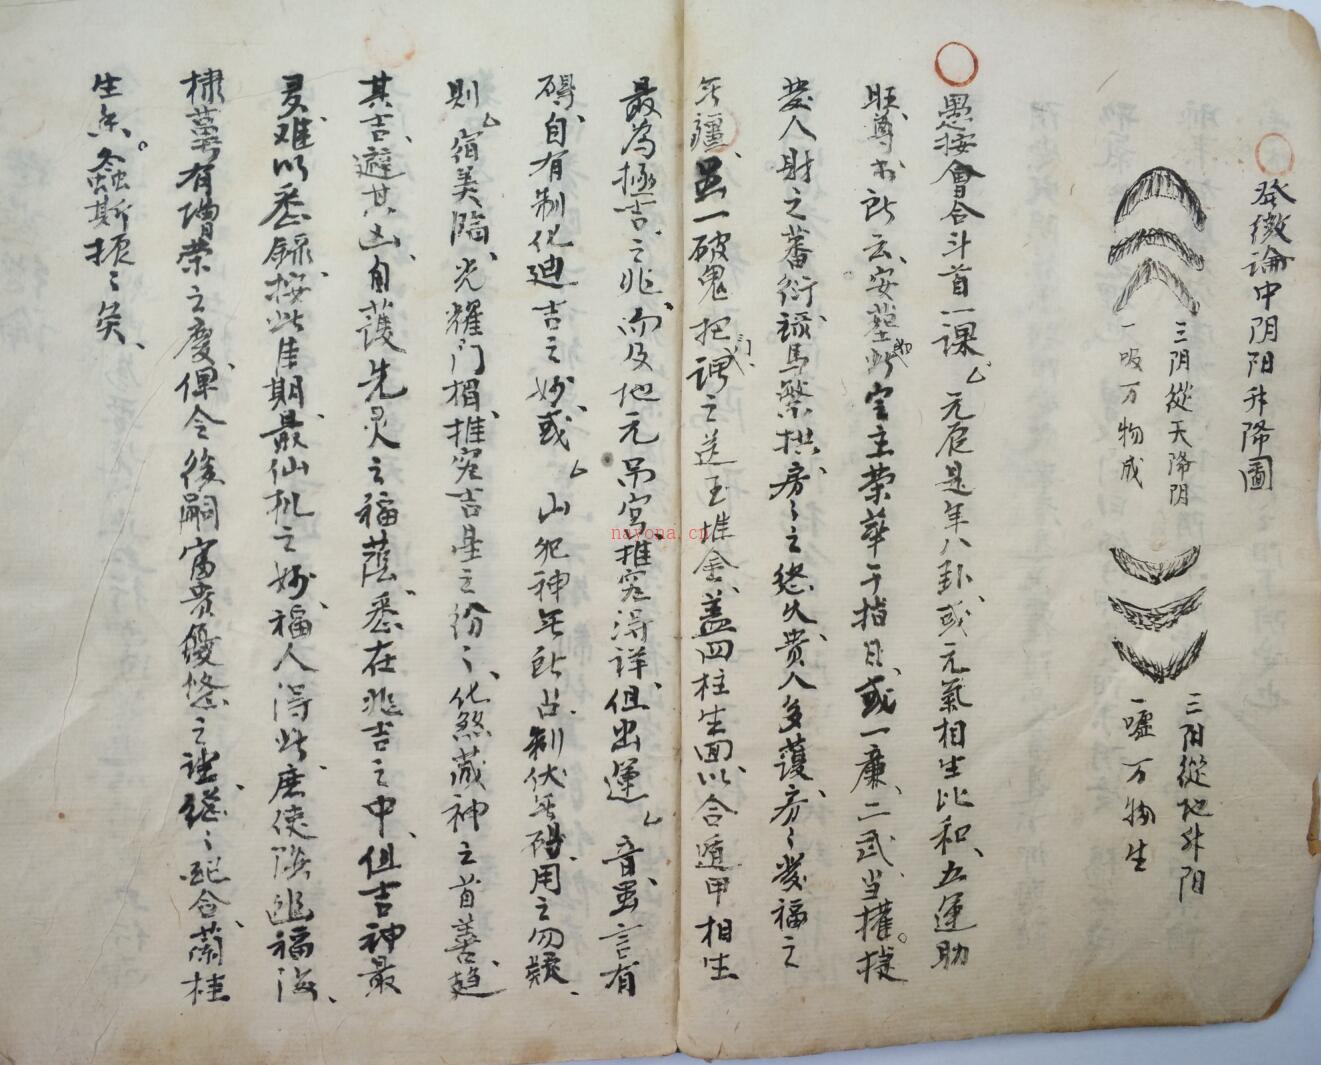 發微論中阴阳升降圖
三阴從天降阴
一吸万物成
三阳從地升阳
一噓万物生
愚按會合斗首一課 元辰是年八卦或元氣相生比和五運助
旺尊书所云安墓 宅主荣華于指日或一廉二武当權捉
發人財之蕃衍 馬繁 房之悠久贵人多護房々發福之
年疆 一破鬼把 之送玉堆金盖四柱生面以合遁甲相生
最為極吉之兆而及地元吊宮推究得詳但出運 音虽言有
碍自有制化迪吉之妙或 山犯神年所占制伏年碍用之勿疑
則 宿美臨光耀门楣推究吉星之份々化煞藏神之首善趋
其吉避其凶自護先灵之福蔭悉在兆吉之中但吉神最
灵难以悉錄按此佳期最仙机之妙福人得此庶使 福海
棣萼有增荣之慶俾令後嗣富贵優悠之 配合蘭桂
生点 螽斯振々矣
nayona.cn